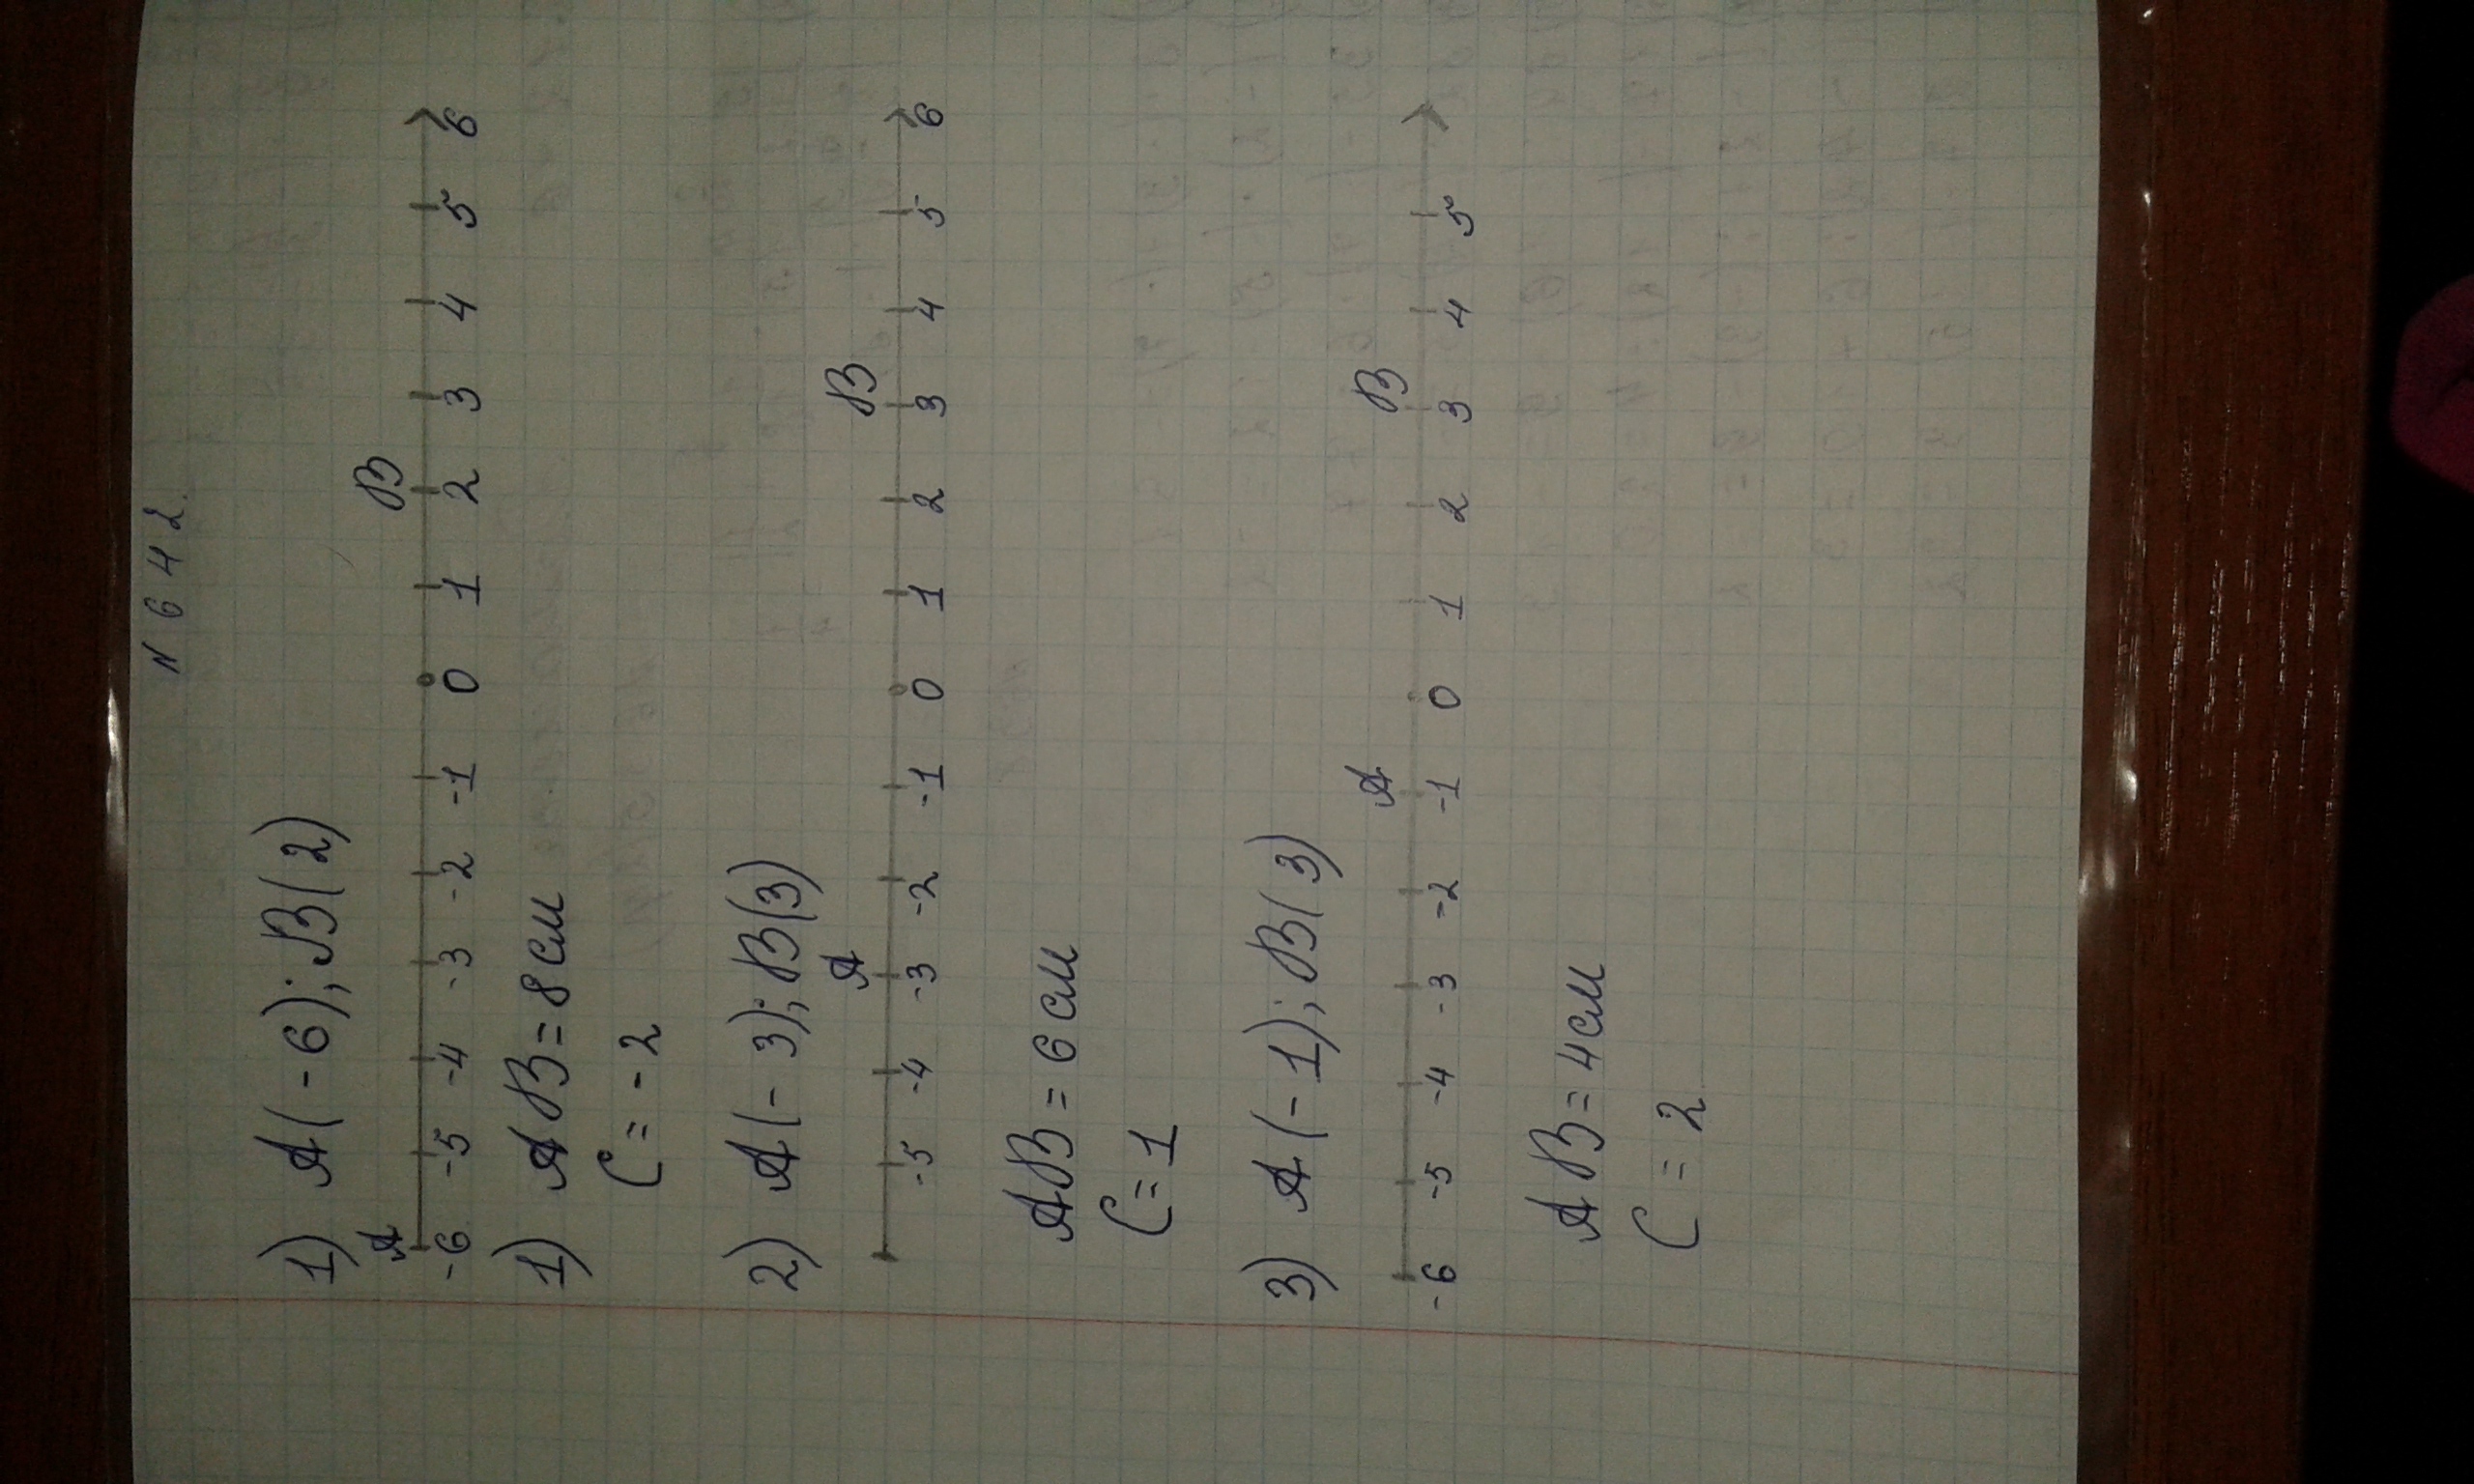 N 642.
1) A(-6); B(2)
A B
-6 -5 -4 -3 -2 -1 0 1 2 3 4 5 6
1) AB = 8 см
C = -2
2) A(-3); B(3)
A B
-5 -4 -3 -2 -1 0 1 2 3 4 5 6
AB = 6 см
C = 1
3) A(-1); B(3)
A B
-6 -5 -4 -3 -2 -1 0 1 2 3 4 5
AB = 4 см
C = 2